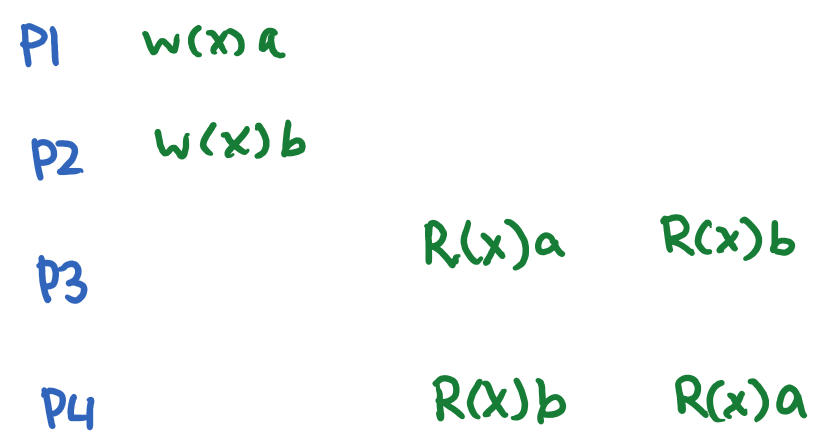 P1 W(x)a
P2 W(x)b
P3 R(x)a R(x)b
P4 R(x)b R(x)a